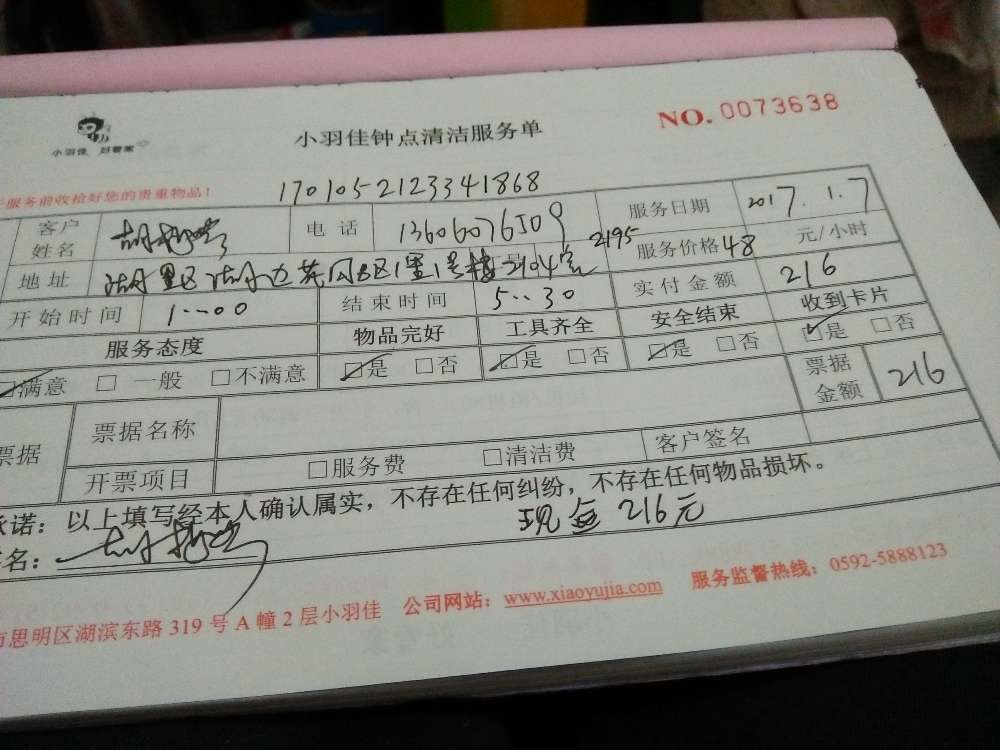 NO. 0073638
小羽佳 好管家
小羽佳钟点清洁服务单
服务前收拾好您的贵重物品！ 1701052123341868
客户姓名 胡 电话 13606076509 服务日期 2017.1.7
地址 湖里区湖边花园 区 里1号楼2104室 2195 服务价格 48 元/小时
开始时间 1:00 结束时间 5:30 实付金额 216
服务态度 物品完好 工具齐全 安全结束 收到卡片
☑满意 □一般 □不满意 ☑是 □否 ☑是 □否 ☑是 □否 ☑是 □否
票据 票据名称 票据金额 216
开票项目 □服务费 □清洁费 客户签名
承诺：以上填写经本人确认属实，不存在任何纠纷，不存在任何物品损坏。
名：胡 现金216元
市思明区湖滨东路319号A幢2层小羽佳 公司网站：www.xiaoyujia.com 服务监督热线：0592-5888123